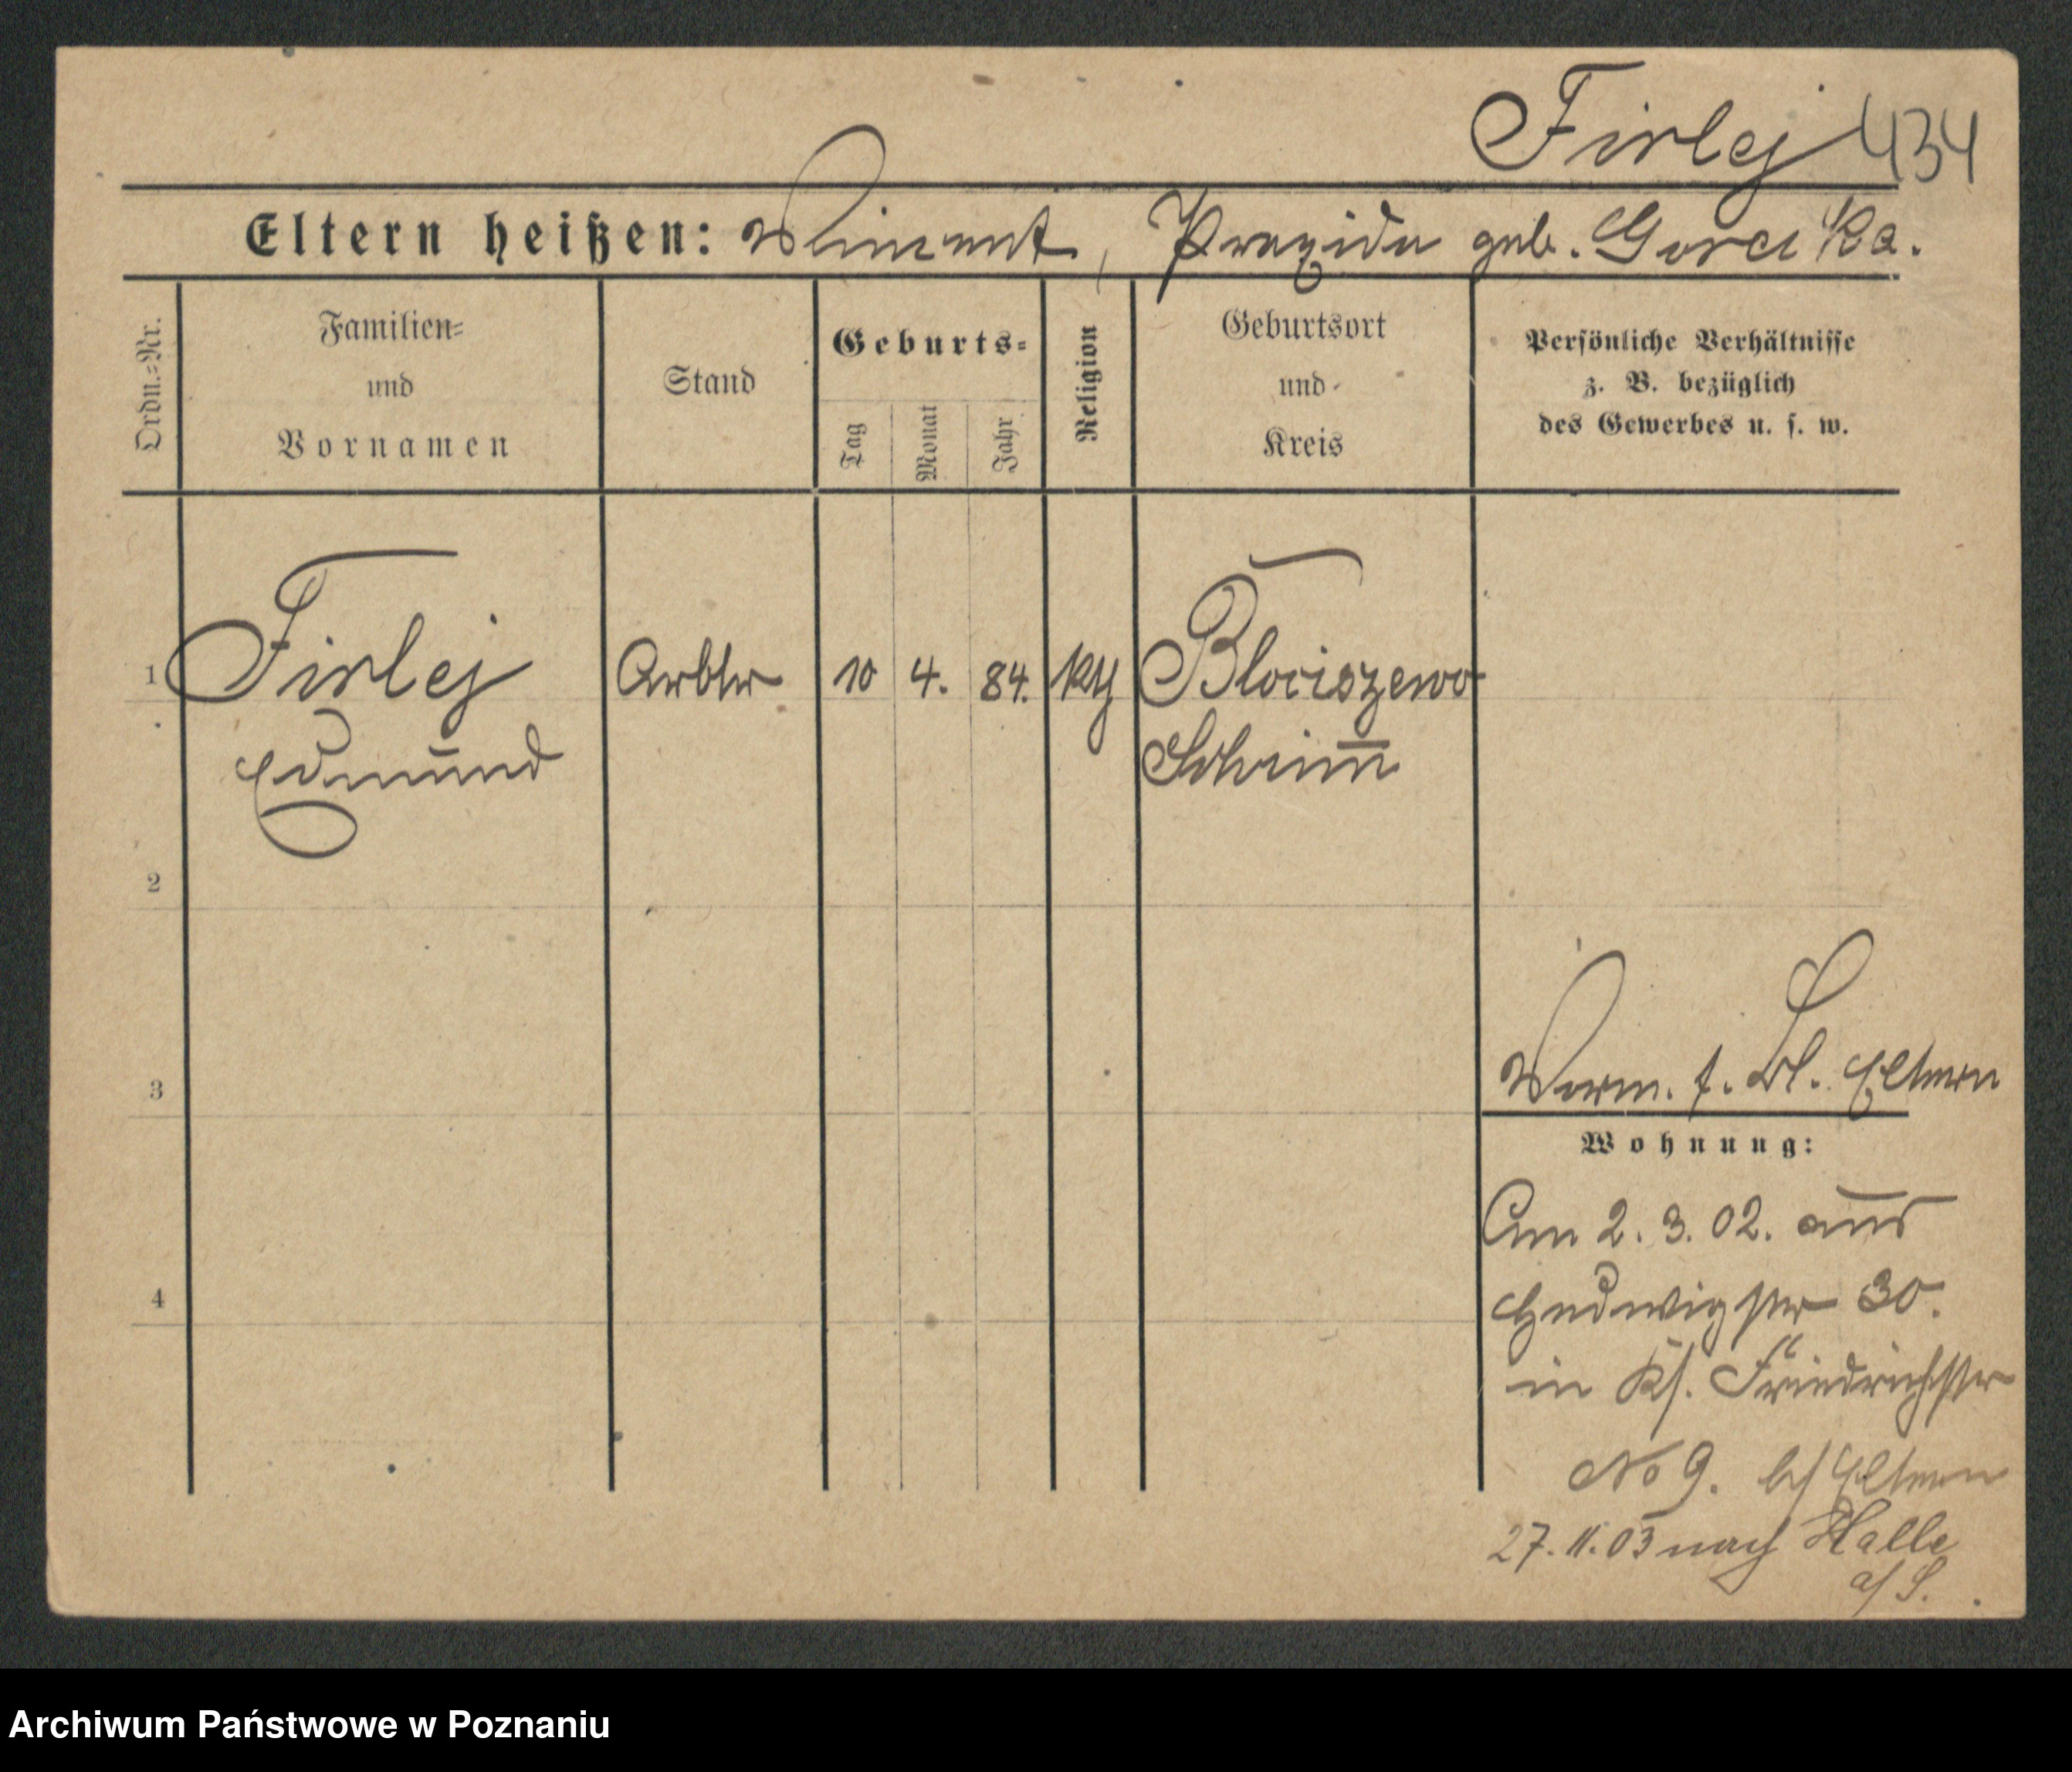 Firlej 434
Eltern heißen: Vincent, Praxida geb. Gorcika.
Ordn.-Nr.
Familien-
und
Vornamen
Stand
Geburts-
Tag
Monat
Jahr
Religion
Geburtsort
und
Kreis
Persönliche Verhältnisse
z. B. bezüglich
des Gewerbes u. s. w.
1 Firlej Arbtr 10 4. 84. kth Blociszewo
Edmund Schrimm
2
3
Verm. f. Bl. Eltern
Wohnung:
4
Am 2. 3. 02. aus
Hedwigstr 30.
in Ks. Friedrichstr
No 9. b/ Eltern
27. 11. 03 nach Halle
a/ S.
Archiwum Państwowe w Poznaniu